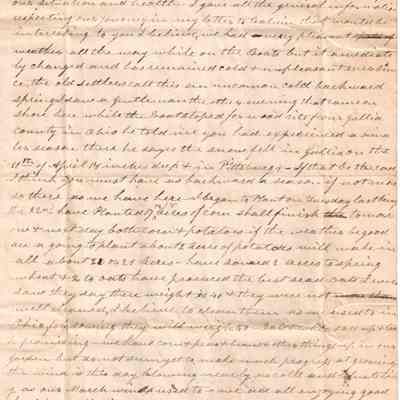 our situation and health I gave all the general information
respecting our journey in my letter to Calvin that would be
interesting to you I believe, we had very pleasant
weather all the way while on the Boats but it immediate
ly changed and has remained cold & unpleasant ever sin
ce, the old settlers call this an uncommon cold backward
spring I saw a gentleman the other evening that came on
shore here while the Boat stoped for wood its from Gallia
county in Ohio he told me you had experienced a simi
lar season there he sayes the snow fell in Gallia on the
11th of April 14 inches deep & in Pittsburg If that be the case
I think you must have as backward a season if not more
so there as we have here I began to Plant on Tuesday last being
the 12th have Planted 7 acres of corn shall finish tomor
row & next day both corn & potatoes if the weather be good
are a going to plant about acres of potatoes will make in
all about 20 or 21 acres have sowed 2 acres to spring
wheat & 2 to oats have procured the best seed oats I ever
saw they say there weight is 40 & they were not
well cleaned, I believe to clean them as we used to in
Ohio for sowing they will weigh 50 our oats
promising we have corn & peas beans & other things up in our
garden but as not sun yet to make much progress at growing
the wind is this day blowing nearly as cold and
as our March winds used to we are all enjoying good